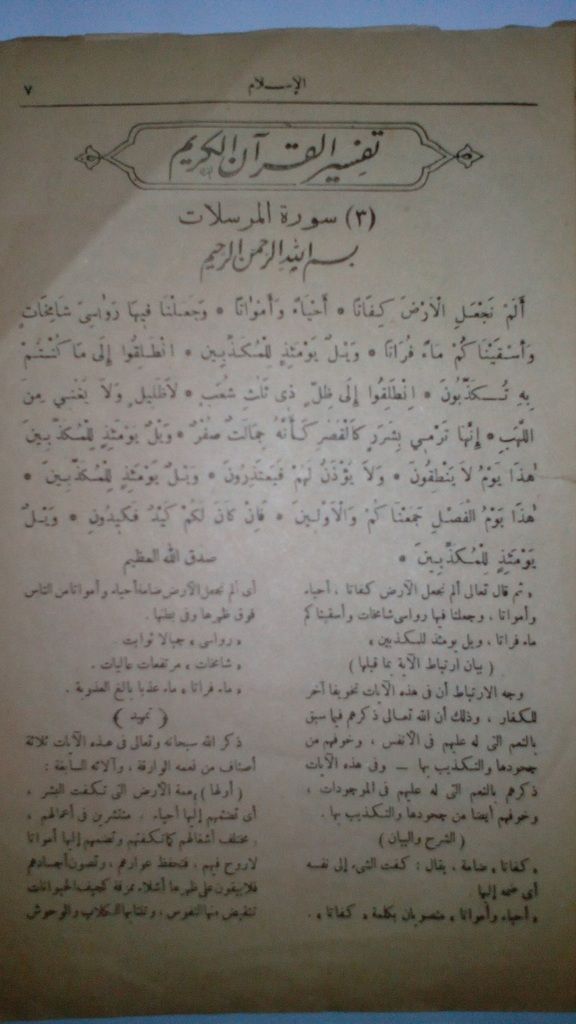 الإسلام
٧
تفسير القرآن الكريم
(٣) سورة المرسلات
بسم الله الرحمن الرحيم
أَلَمْ نَجْعَلِ الْأَرْضَ كِفَاتًا * أَحْيَاءً وَأَمْوَاتًا * وَجَعَلْنَا فِيهَا رَوَاسِيَ شَامِخَاتٍ
وَأَسْقَيْنَاكُمْ مَاءً فُرَاتًا * وَيْلٌ يَوْمَئِذٍ لِلْمُكَذِّبِينَ * انْطَلِقُوا إِلَى مَا كُنْتُمْ
بِهِ تُكَذِّبُونَ * انْطَلِقُوا إِلَى ظِلٍّ ذِي ثَلَاثِ شُعَبٍ * لَا ظَلِيلٍ وَلَا يُغْنِي مِنَ
اللَّهَبِ * إِنَّهَا تَرْمِي بِشَرَرٍ كَالْقَصْرِ كَأَنَّهُ جِمَالَتٌ صُفْرٌ * وَيْلٌ يَوْمَئِذٍ لِلْمُكَذِّبِينَ
هَذَا يَوْمُ لَا يَنْطِقُونَ * وَلَا يُؤْذَنُ لَهُمْ فَيَعْتَذِرُونَ * وَيْلٌ يَوْمَئِذٍ لِلْمُكَذِّبِينَ *
هَذَا يَوْمُ الْفَصْلِ جَمَعْنَاكُمْ وَالْأَوَّلِينَ * فَإِنْ كَانَ لَكُمْ كَيْدٌ فَكِيدُونِ * وَيْلٌ
يَوْمَئِذٍ لِلْمُكَذِّبِينَ * صدق الله العظيم
« ثم قال تعالى ألم نجعل الأرض كفاتا ، أحياء
وأمواتا ، وجعلنا فيها رواسى شامخات وأسقيناكم
ماء فراتا ، ويل يومئذ للمكذبين »
( بيان ارتباط الآية بما قبلها )
وجه الارتباط أن فى هذه الآيات تخويفا آخر
للكفار ، وذلك أن الله تعالى ذكرهم فيما سبق
بالنعم التى له عليهم فى الأنفس ، وخوفهم من
جحودها والتكذيب بها — وفى هذه الآيات
ذكرهم بالنعم التى له عليهم فى الموجودات ،
وخوفهم أيضا من جحودها والتكذيب بها .
( الشرح والبيان )
« كفاتا » ضامة ، يقال : كفت الشىء إلى نفسه
أى ضمه إليها
« أحياء وأمواتا » منصوبان بكلمة « كفاتا » .
أى ألم نجعل الأرض ضامة أحياء وأمواتا من الناس
فوق ظهرها وفى بطنها .
« رواسى » جبالا ثوابت
« شامخات » مرتفعات عاليات .
« ماء فراتا » ماء عذبا بالغ العذوبة .
( تمهيد )
ذكر الله سبحانه وتعالى فى هذه الآيات ثلاثة
أصناف من نعمه الوارقة ، وآلائه السابغة :
( أولها ) نعمة الأرض التى تكفت البشر ،
أى تضمهم إليها أحياء ، منتشرين فى أعمالهم ،
مختلف أشغالهم كما تكفتهم وتضمهم إليها أمواتا
لاروح فيهم ، فتحفظ عوارهم ، وتصون أجسادهم
فلا يبقون على ظهرها أشلاء ممزقة كجيف الحيوانات
تنقبض منها النفوس ، وتنتابها الكلاب والوحوش